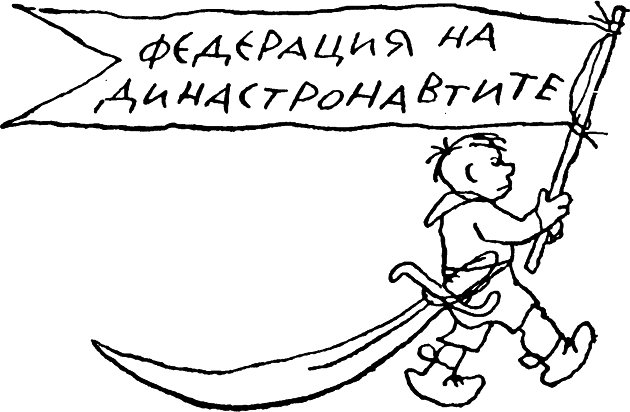 ФЕДЕРАЦИЯ НА
ДИНАСТРОНАВТИТЕ